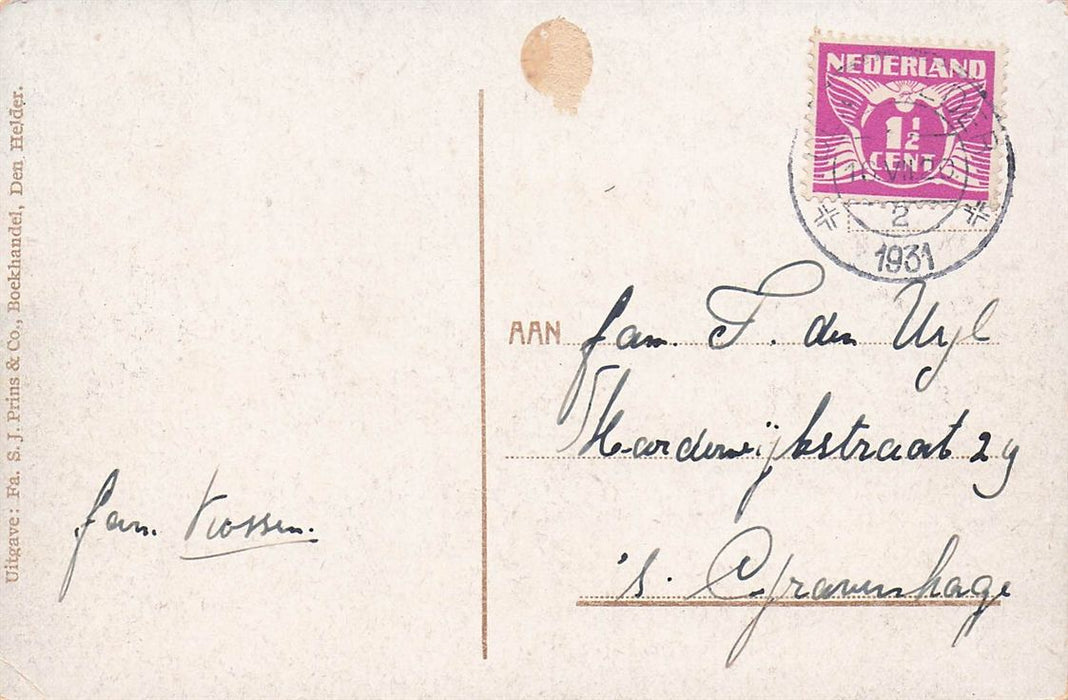 Uitgave: Fa. S. J. Prins & Co., Boekhandel, Den Helder.
NEDERLAND
1½
CENT
2
1931
AAN fam. F. den Uyl
Harderwijkstraat 29
's. Gravenhage
fam. Vrossen.